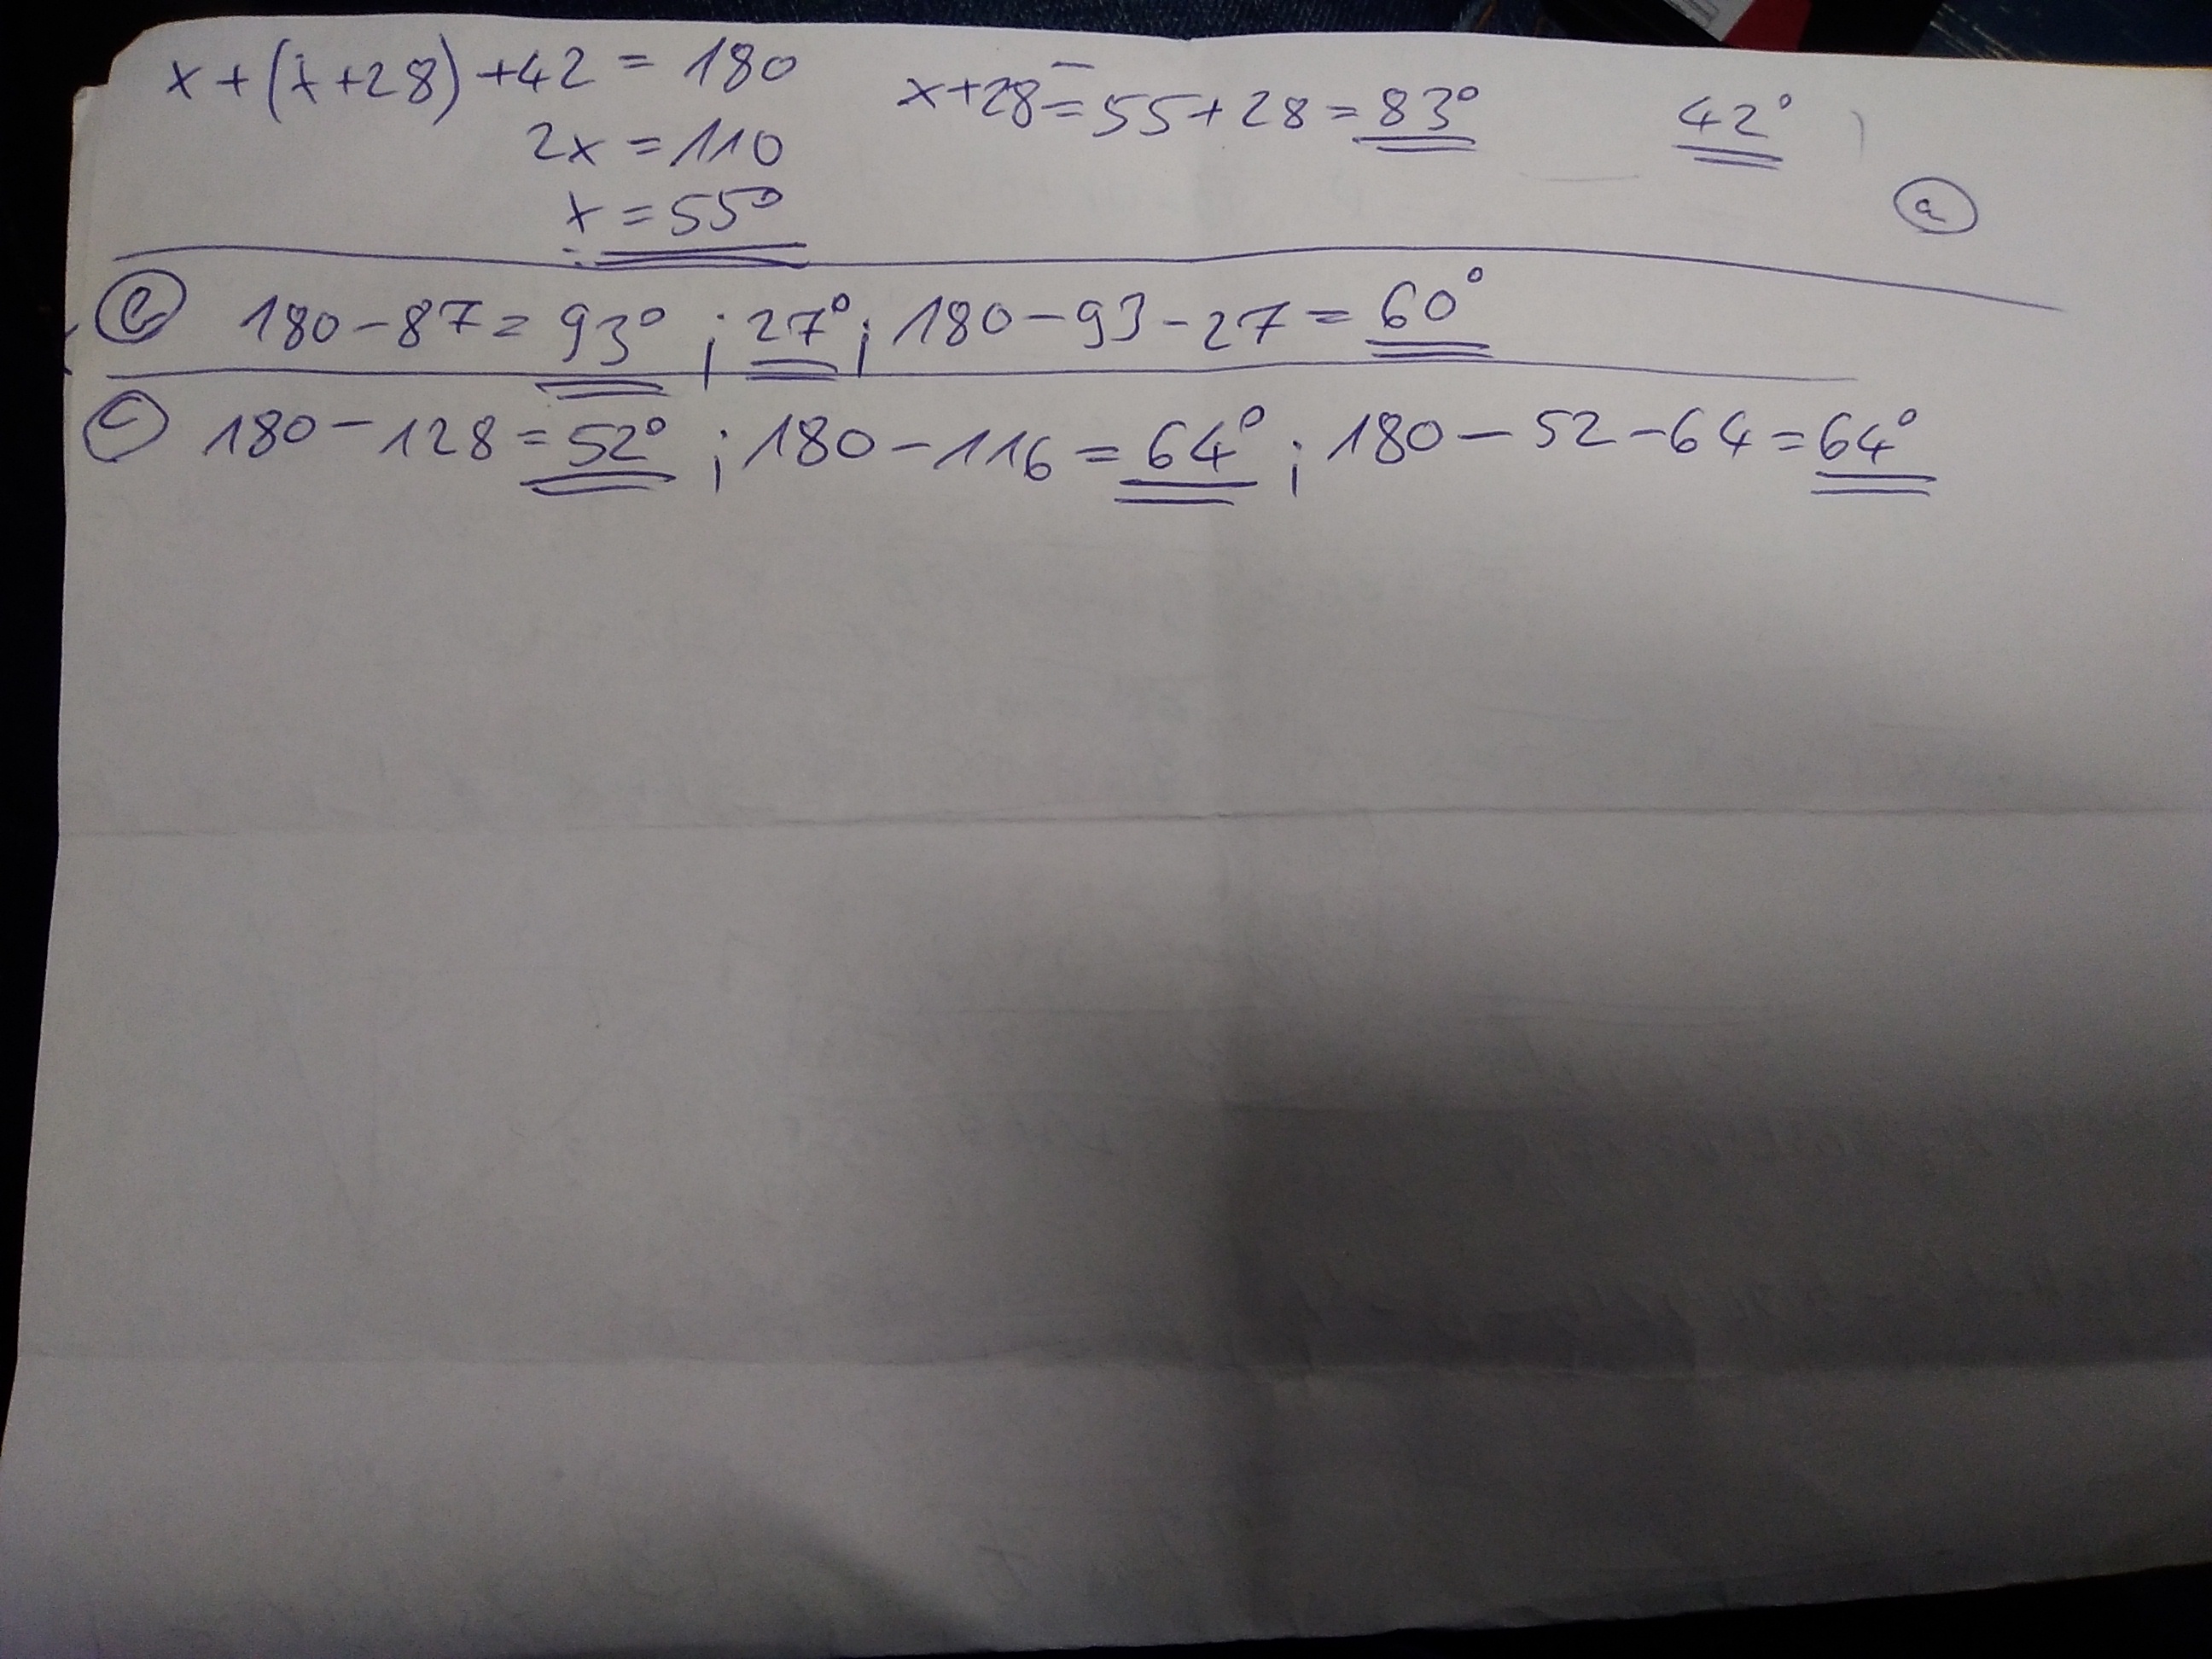 x+(x+28)+42 = 180 x+28=55+28=83° 42°
2x = 110
x = 55° a
b 180-87=93° ; 27° ; 180-93-27=60°
c 180-128=52° ; 180-116=64° ; 180-52-64=64°